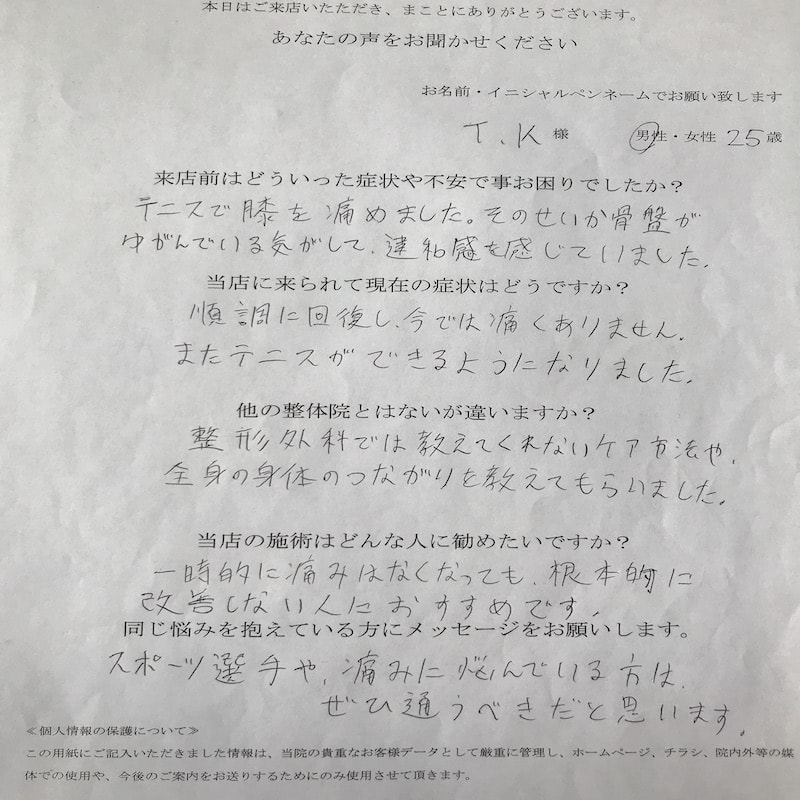 本日はご来店いたただき、まことにありがとうございます。
あなたの声をお聞かせください
お名前・イニシャルペンネームでお願い致します
T.K様 男性・女性 25歳
来店前はどういった症状や不安で事お困りでしたか？
テニスで膝を痛めました。そのせいか骨盤が
ゆがんでいる気がして、違和感を感じていました。
当店に来られて現在の症状はどうですか？
順調に回復し、今では痛くありません。
またテニスができるようになりました。
他の整体院とはないが違いますか？
整形外科では教えてくれないケア方法や、
全身の身体のつながりを教えてもらいました。
当店の施術はどんな人に勧めたいですか？
一時的に痛みはなくなっても、根本的に
改善しない人におすすめです。
同じ悩みを抱えている方にメッセージをお願いします。
スポーツ選手や、痛みに悩んでいる方は、
ぜひ通うべきだと思います。
≪個人情報の保護について≫
この用紙にご記入いただきました情報は、当院の貴重なお客様データとして厳重に管理し、ホームページ、チラシ、院内外等の媒
体での使用や、今後のご案内をお送りするためにのみ使用させて頂きます。